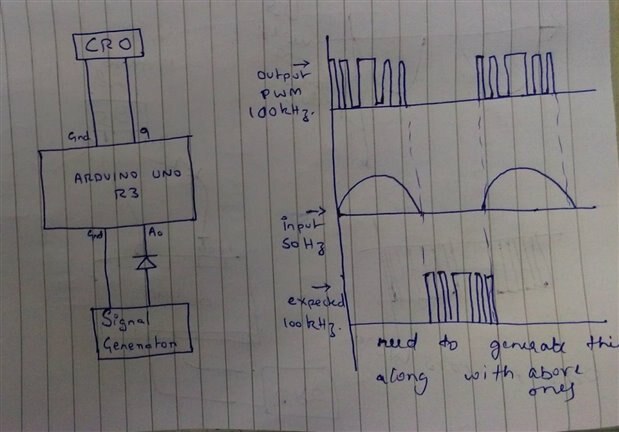 CRO
Gnd
9
ARDUINO UNO
R3
Gnd
A0
Signal
Generator
output
pwm
100kHz.
input
50Hz
expected
100kHz.
need to generate this
along with above
ones